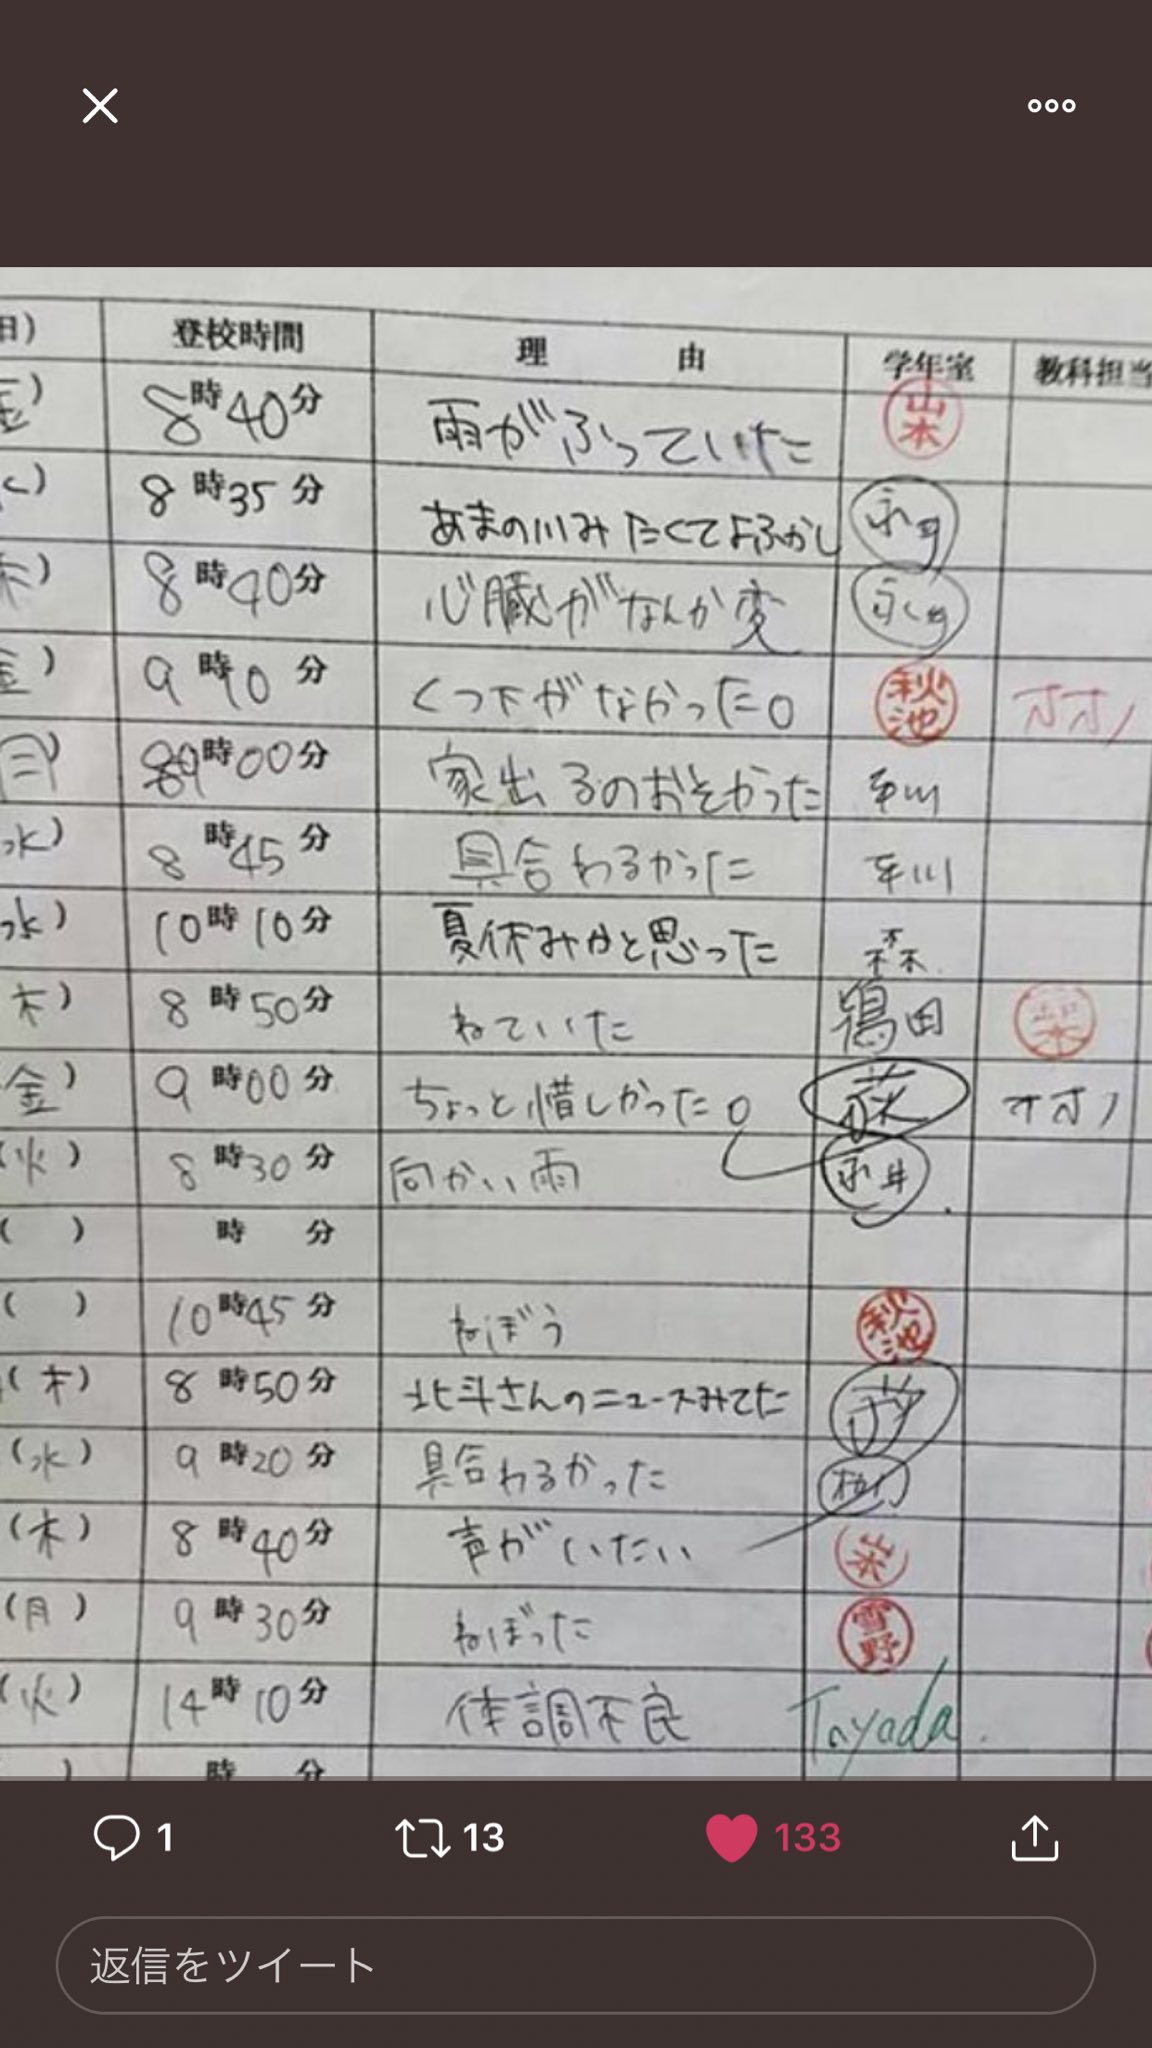 日) 登校時間 理 由 学年室 教科担当
金) 8時40分 雨がふっていた 山本
8時35分 あまの川みたくてよふかし 永井
木) 8時40分 心臓がなんか変 永井
金) 9時10分 くつ下がなかった。 秋池 オオノ
月) 9時00分 家出るのおそかった 平川
水) 8時45分 具合わるかった 平川
水) 10時10分 夏休みかと思った 森
木) 8時50分 ねていた 鶴田
金) 9時00分 ちょっと惜しかった。 オオノ
(火) 8時30分 向かい雨 永井
( ) 時 分
( ) 10時45分 ねぼう 秋池
(木) 8時50分 北斗さんのニュースみてた
(水) 9時20分 具合わるかった
(木) 8時40分 声がいたい
(月) 9時30分 ねぼった 雪野
(火) 14時10分 体調不良 Tayada.
) 時 分
1 13 133
返信をツイート